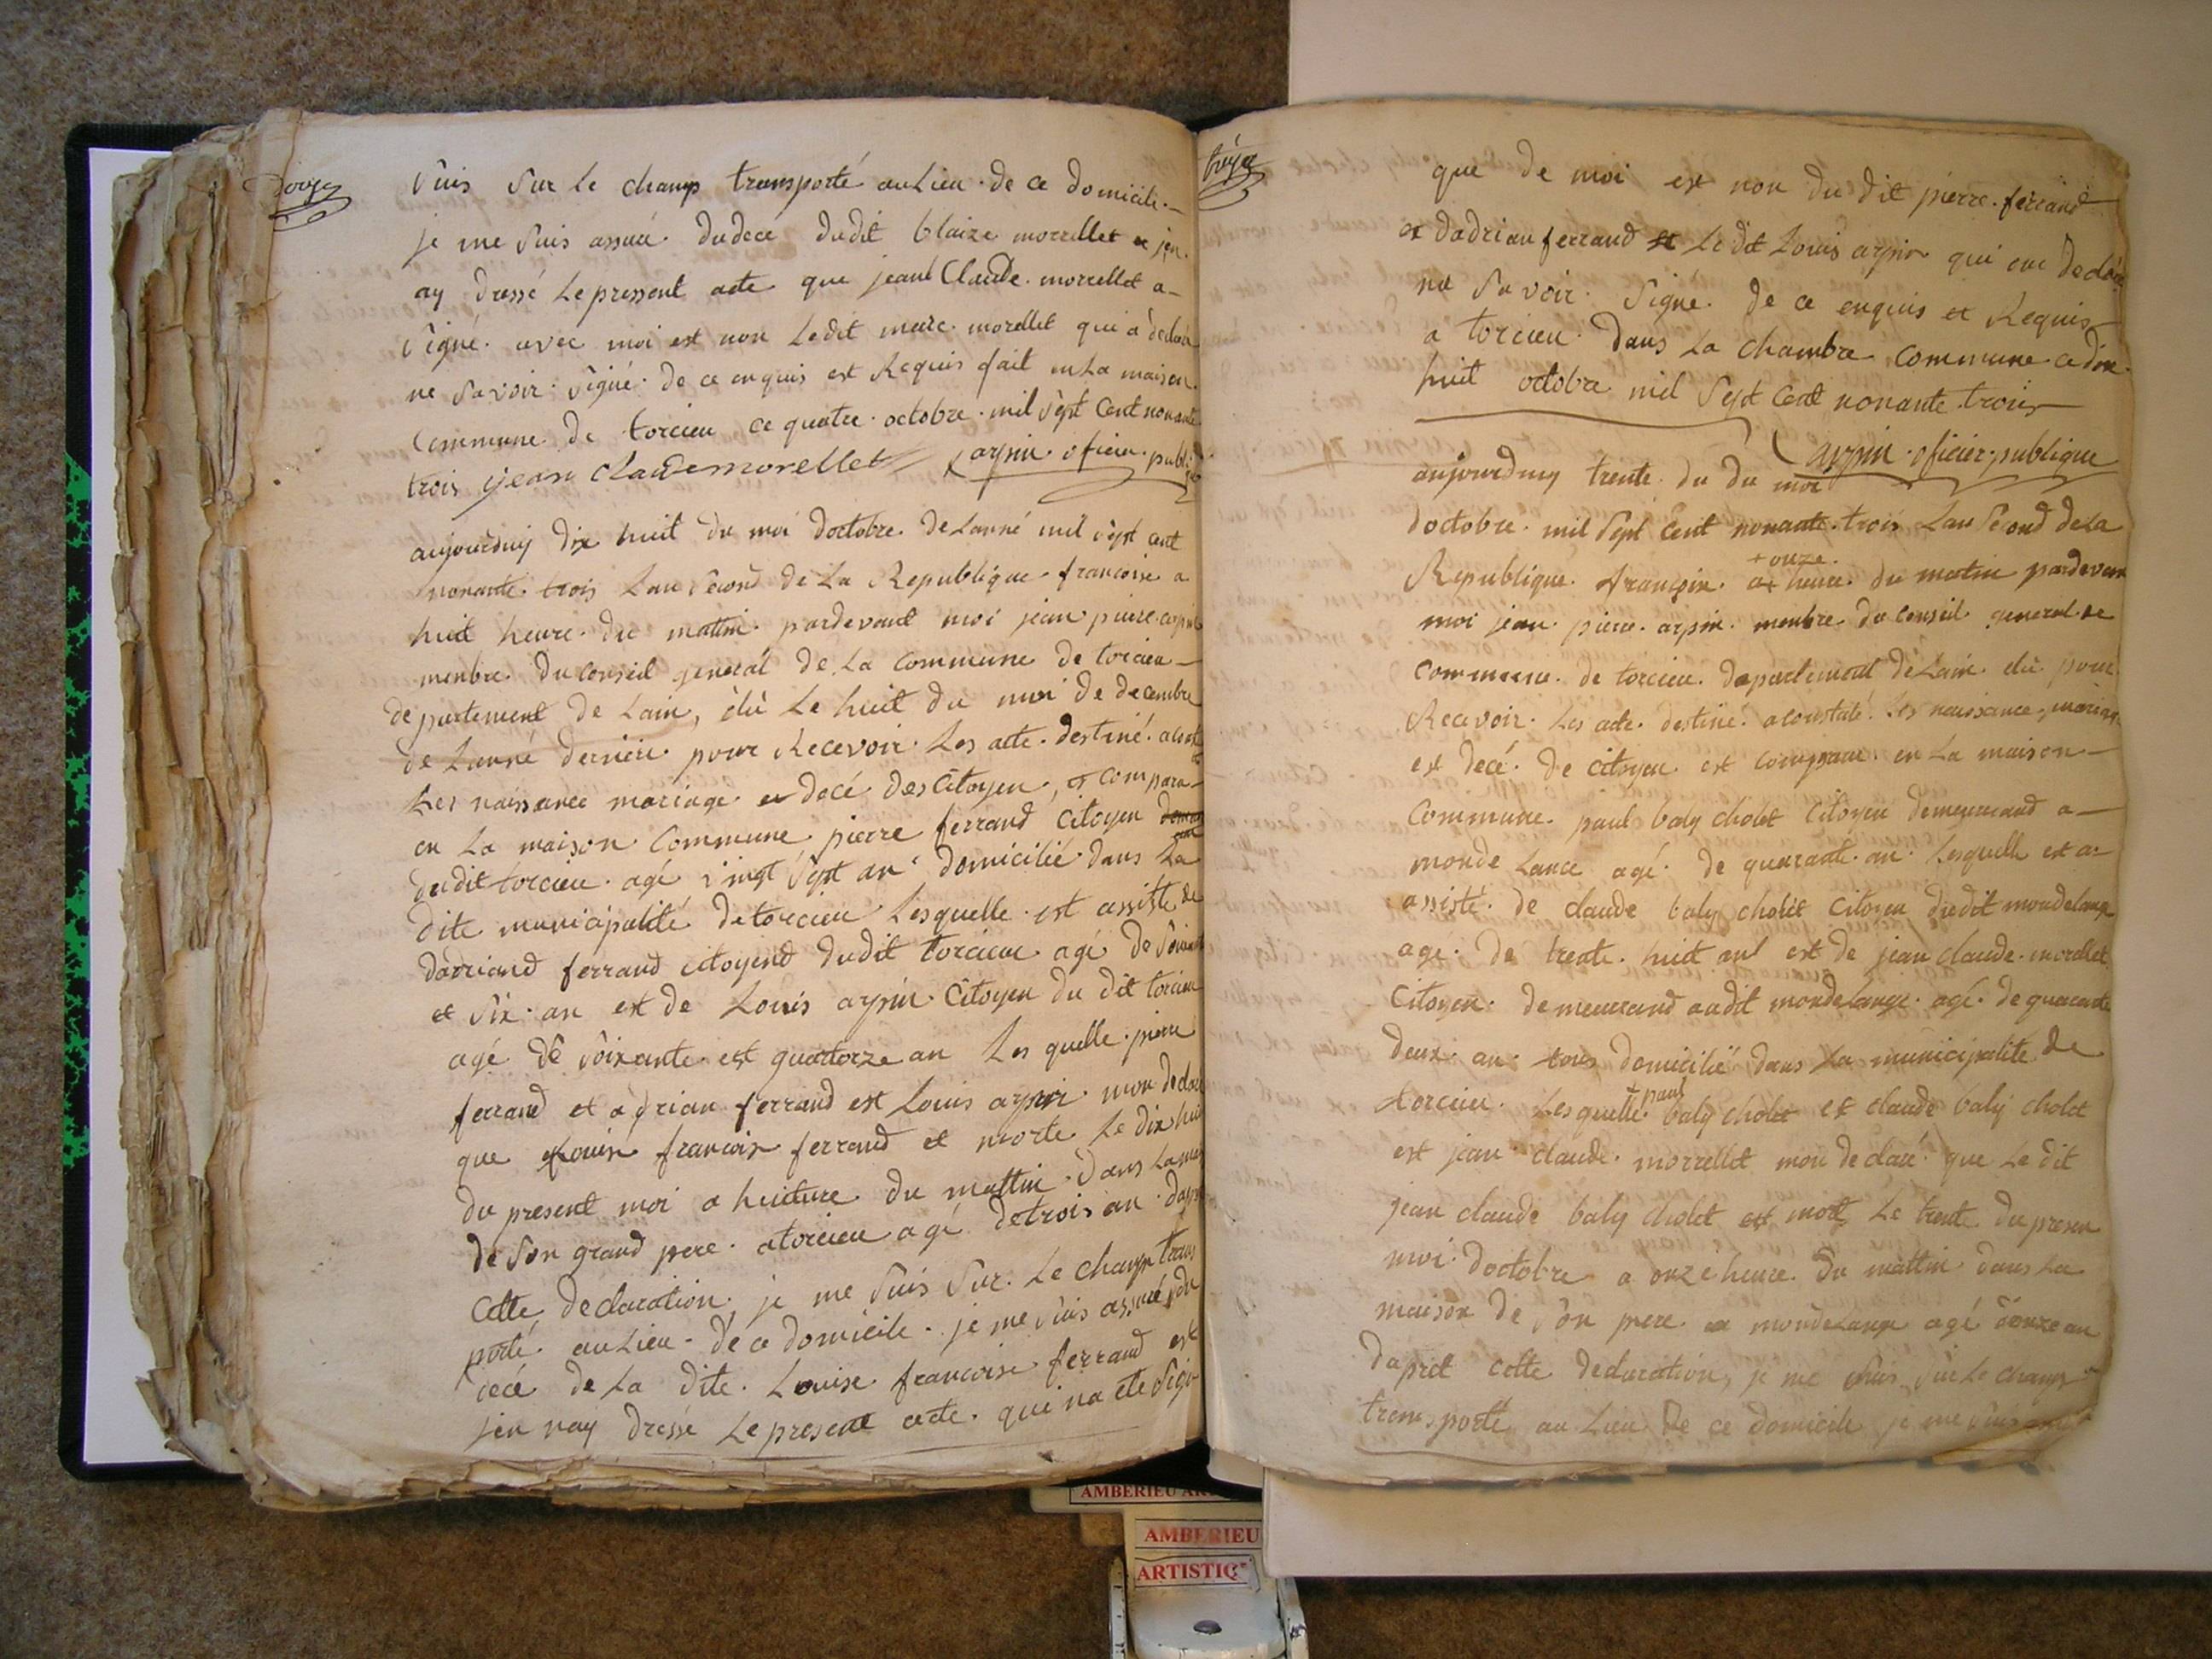 douze
suis sur le champ transporté au Lieu de ce domicile
je me suis assuré du decé dudit blaize morrellet et jen
ay dressé Le pressent acte que jean Claude morrellet a
signé avec moi est non Ledit marc morellet qui a declaré
ne savoir signé de ce enquis est Requis fait en La maison
Commune de torcieu ce quatre octobre mil sept Cent nonante
trois jean claude morellet arpin oficier publique
aujourduy dix huit du moi doctobre de Lanné mil sept cent
nonante trois Lan second de La Republique francoise a
huit heure du matin pardevant moi jean pierre arpin
menbre du Conseil general de La Commune de torcieu
departement de Lain, élù Le huit du moi de decembre
de Lanné derniere pour Recevoir Les acte destiné a
Les naissance mariage et decé des Citoyen, et compara
en La maison Commune pierre ferrand Citoyen
dudit torcieu agé vingt sept an domicilié dans La
dite municipalité de torcieu Lesquelle est assisté de
dadriand ferrand citoyend dudit torcieu agé de soixante
et six an est de Louis arpin Citoyen du dit torcieu
agé de soixante est quatorze an Les quelle pierre
ferrand et adrian ferrand est Louis arpin mon declaré
que Louise francoise ferrand et morte Le dix huit
du present moi a huiture du mattin dans La
de son grand pere a torcieu agé de trois an
Cette declaration, je me suis sur Le champ trans
porté au Lieu de ce domicile je me suis assuré du
decé de La dite Louise francoise ferrand est
jen nay dressé Le present acte qui na ete signé
treize
que de moi est non du dit pierre ferrand
et dadrian ferrand et Le dit Louis arpin qui declaré
ne savoir signé de ce enquis et Requis
a torcieu dans La chambre Commune ce dix
huit octobre mil sept Cent nonante trois
arpin oficier publique
aujourduy trente du du moi
doctobre mil sept Cent nonante trois Lan second de La
+ onze
Republique françoise a+ heure du matin pardevant
moi jean pierre arpin menbre du Conseil general de
Commune de torcieu departement de Lain élù pour
Recevoir Les acte destiné a Constaté Les naissance, mariage
est decé de Citoyen est comparu en La maison
Commune paul baly cholet Citoyen demeurand a
monde Lance agé de quarante an Lesquelle est a
assisté de claude baly cholet Citoyen dudit mondelange
agé de trente huit anl est de jean claude morellet
Citoyen demeurand audit mondelange agé de quarante
deux an tous domicilié dans La municipalite de
+ paul
torcieu Lesquelle + baly cholet et claude baly cholet
est jean claude morrellet mon declaré que Le dit
jean claude baly cholet est mort Le trente du presen
moi doctobre a onze heure du mattin dans La
maison de son pere a mondelange agé donze an
daprèt cette declaration, je me suis sur Le champ
transporté au Lieu de ce domicile je me suis
AMBERIEU
AMBERIEU
ARTISTIQ